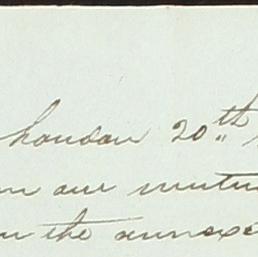 London 20th
our mutu
the annexe